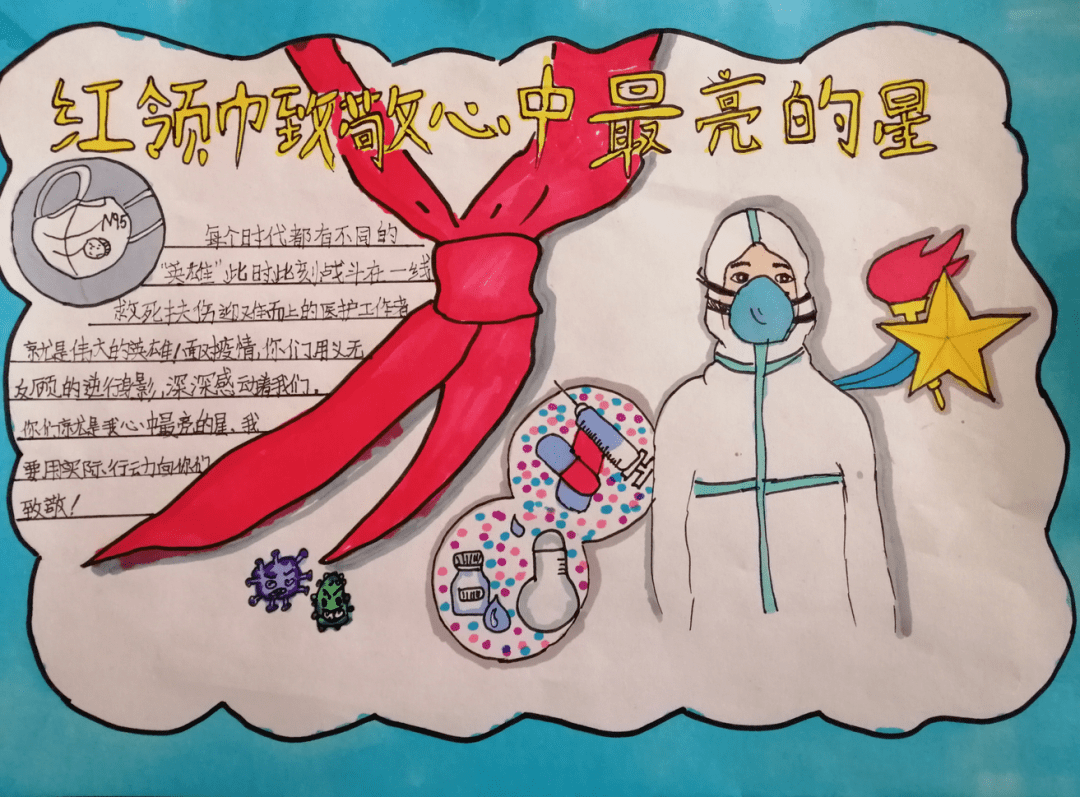 红领巾致敬心中最亮的星
N95
每个时代都有不同的
“英雄”此时此刻战斗在一线
救死扶伤迎难而上的医护工作者
就是伟大的英雄！面对疫情，你们用义无
反顾的逆行身影，深深感动着我们。
你们就是我心中最亮的星、我
要用实际行动向你们
致敬！